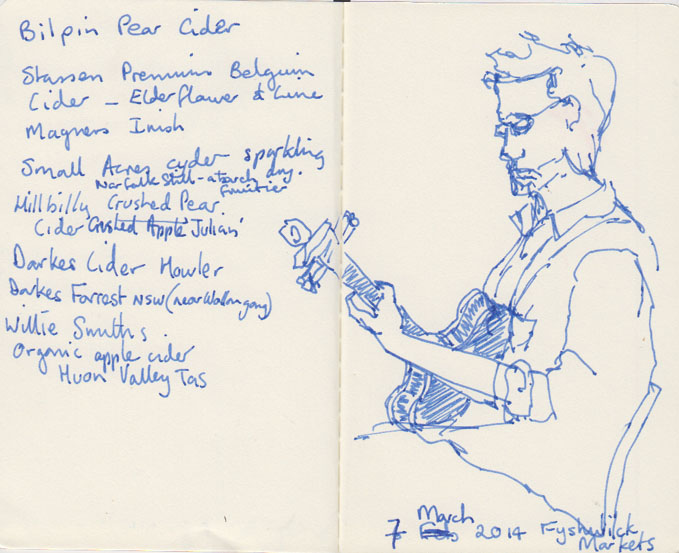 Bilpin Pear Cider
Stassen Premium Belguim
Cider – Elderflower & Lime
Magners Irish
Small Acres cyder sparkling
Norfolk Still - a touch dry.
fruitier
Hillbilly Crushed Pear.
Cider Crushed Apple 'Julian'
Darkes Cider Howler
Darkes Forrest NSW (near Wollongong)
Willie Smiths.
Organic apple cider
Huon Valley Tas
7 March Feb 2014 Fyshwick
Markets